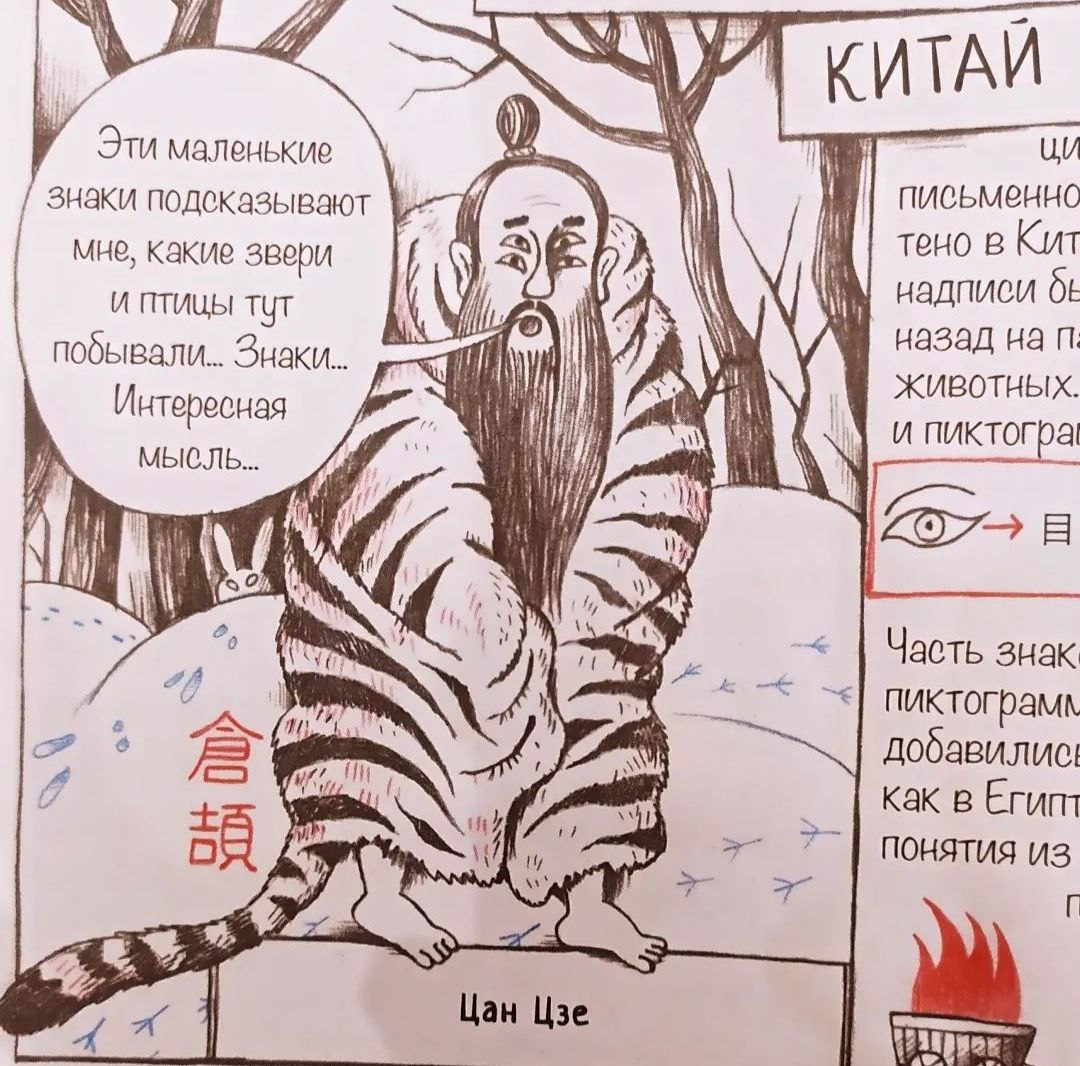 Эти маленькие
знаки подсказывают
мне, какие звери
и птицы тут
побывали... Знаки...
Интересная
мысль...
倉
頡
Цан Цзе
КИТАЙ
ци
письменно
тено в Кит
надписи бы
назад на па
животных.
и пиктограм
目
Часть знако
пиктограмм
добавились
как в Египт
понятия из
п